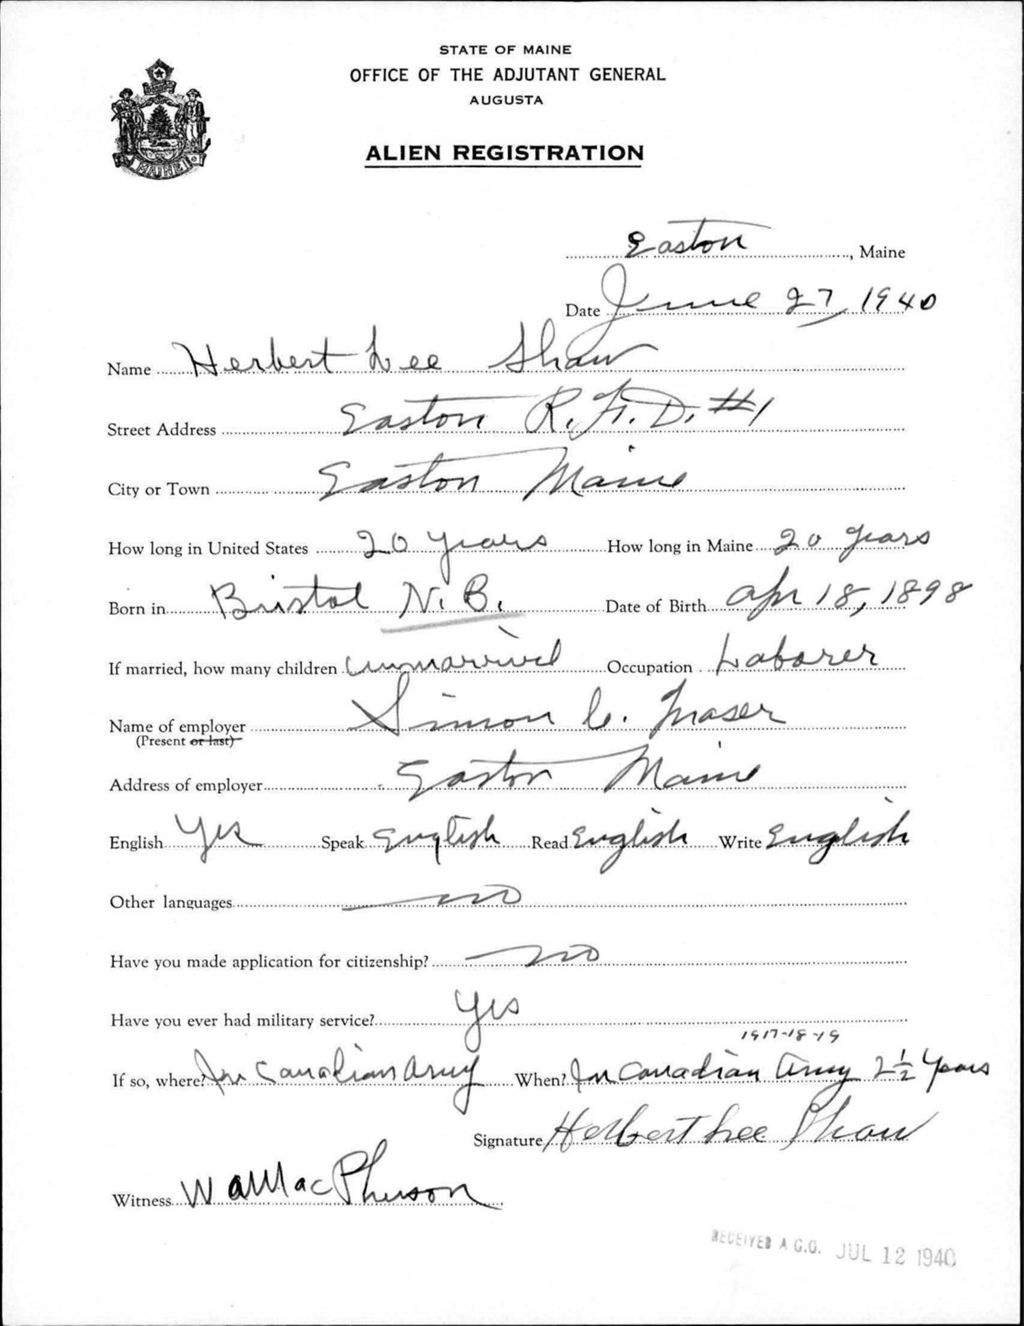 STATE OF MAINE
OFFICE OF THE ADJUTANT GENERAL
AUGUSTA
ALIEN REGISTRATION
MAINE
Easton, Maine
Date June 27, 1940
Name Herbert Lee Shaw
Street Address Easton R.F.D. #1
City or Town Easton Maine
How long in United States 20 years How long in Maine 20 years
Born in Bristol N.B. Date of Birth Apr 18, 1898
If married, how many children unmarried Occupation Laborer
Name of employer Simon C. Fraser
(Present or last)
Address of employer Easton Maine
English Yes Speak English Read English Write English
Other languages no
Have you made application for citizenship? no
Have you ever had military service? Yes
1917-18-19
If so, where? In Canadian Army When? In Canadian Army 2 1/2 Years
Signature Herbert Lee Shaw
Witness MacPherson
RECEIVED A.G.O. JUL 12 1940